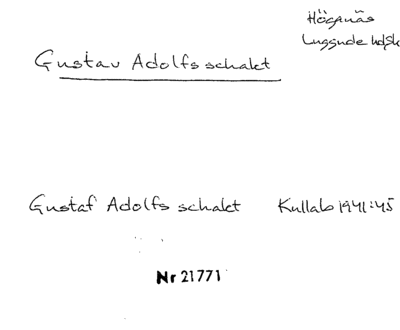 Höganäs
Luggude hdsk
Gustav Adolfs schakt
Gustaf Adolfs schakt Kullab 1941:45
Nr 21771